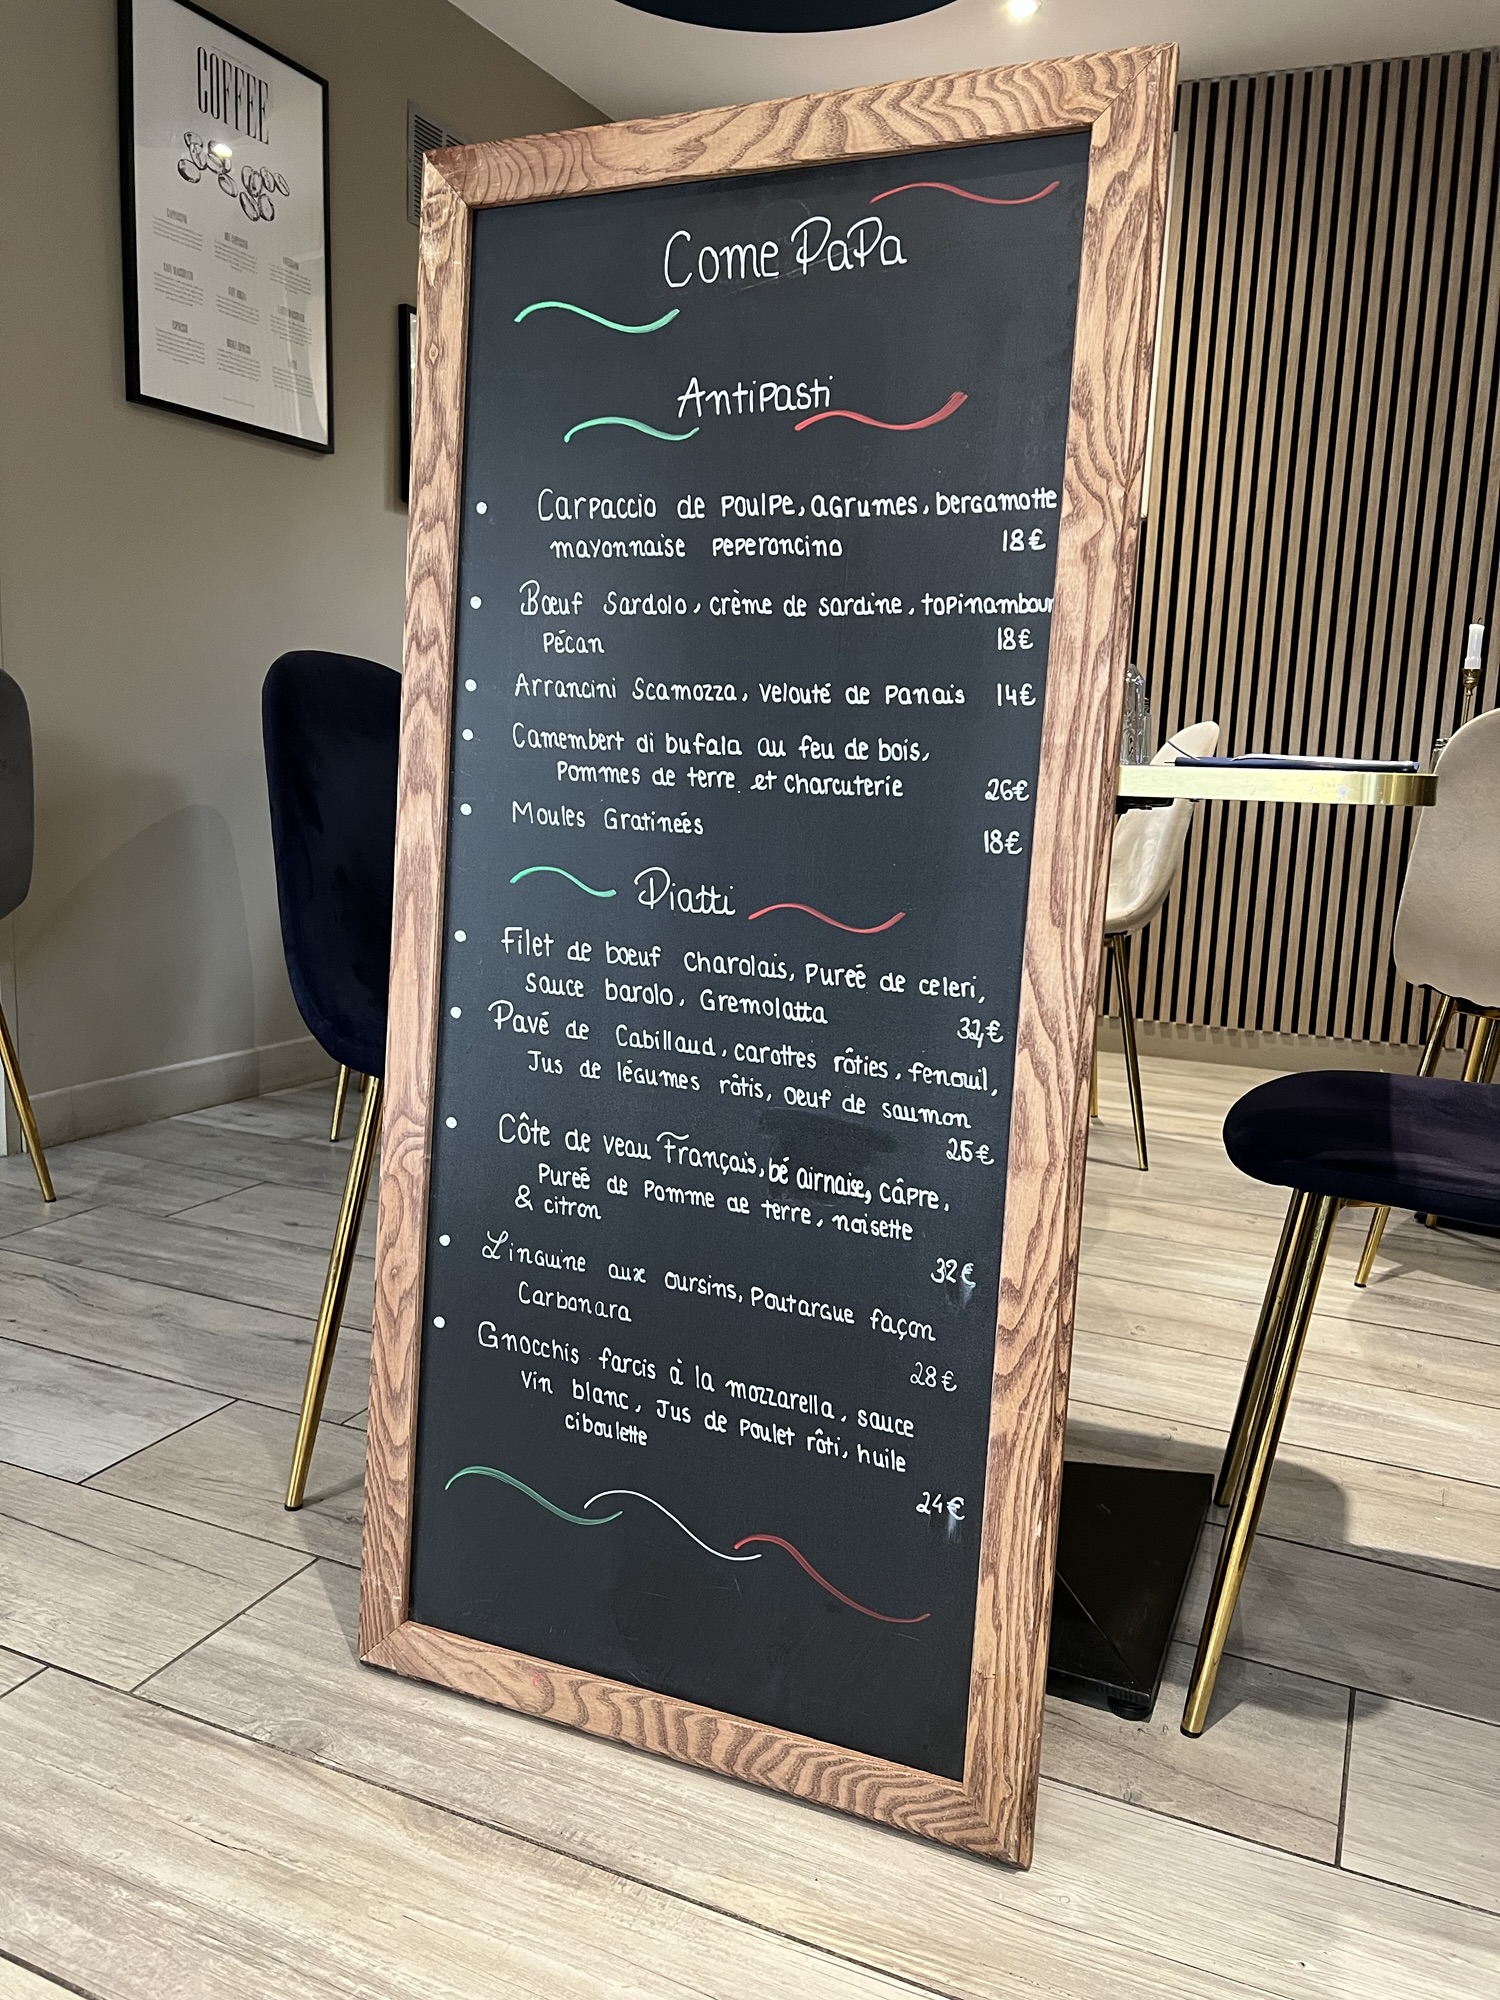 COFFEE
Come PaPa
Antipasti
• Carpaccio de poulpe, agrumes, bergamotte
mayonnaise peperoncino 18€
• Bœuf Sardolo, crème de sardine, topinambour
Pécan 18€
• Arrancini Scamozza, Velouté de Panais 14€
• Camembert di bufala au feu de bois,
Pommes de terre et charcuterie 26€
• Moules Gratineés 18€
Piatti
• Filet de bœuf charolais, Pureé de celeri,
sauce barolo, Gremolatta 32€
• Pavé de Cabillaud, carottes rôties, fenouil,
Jus de légumes rôtis, oeuf de saumon
25€
• Côte de veau Français, béairnaise, câpre,
Pureé de Pomme de terre, noisette
& citron
32€
• Linguine aux oursins, Poutargue façon
Carbonara
28€
• Gnocchis farcis à la mozzarella, sauce
Vin blanc, Jus de Poulet rôti, huile
ciboulette
24€